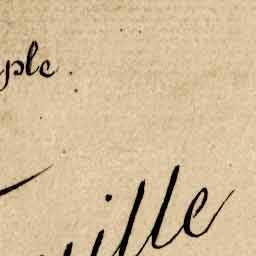 ple
ille